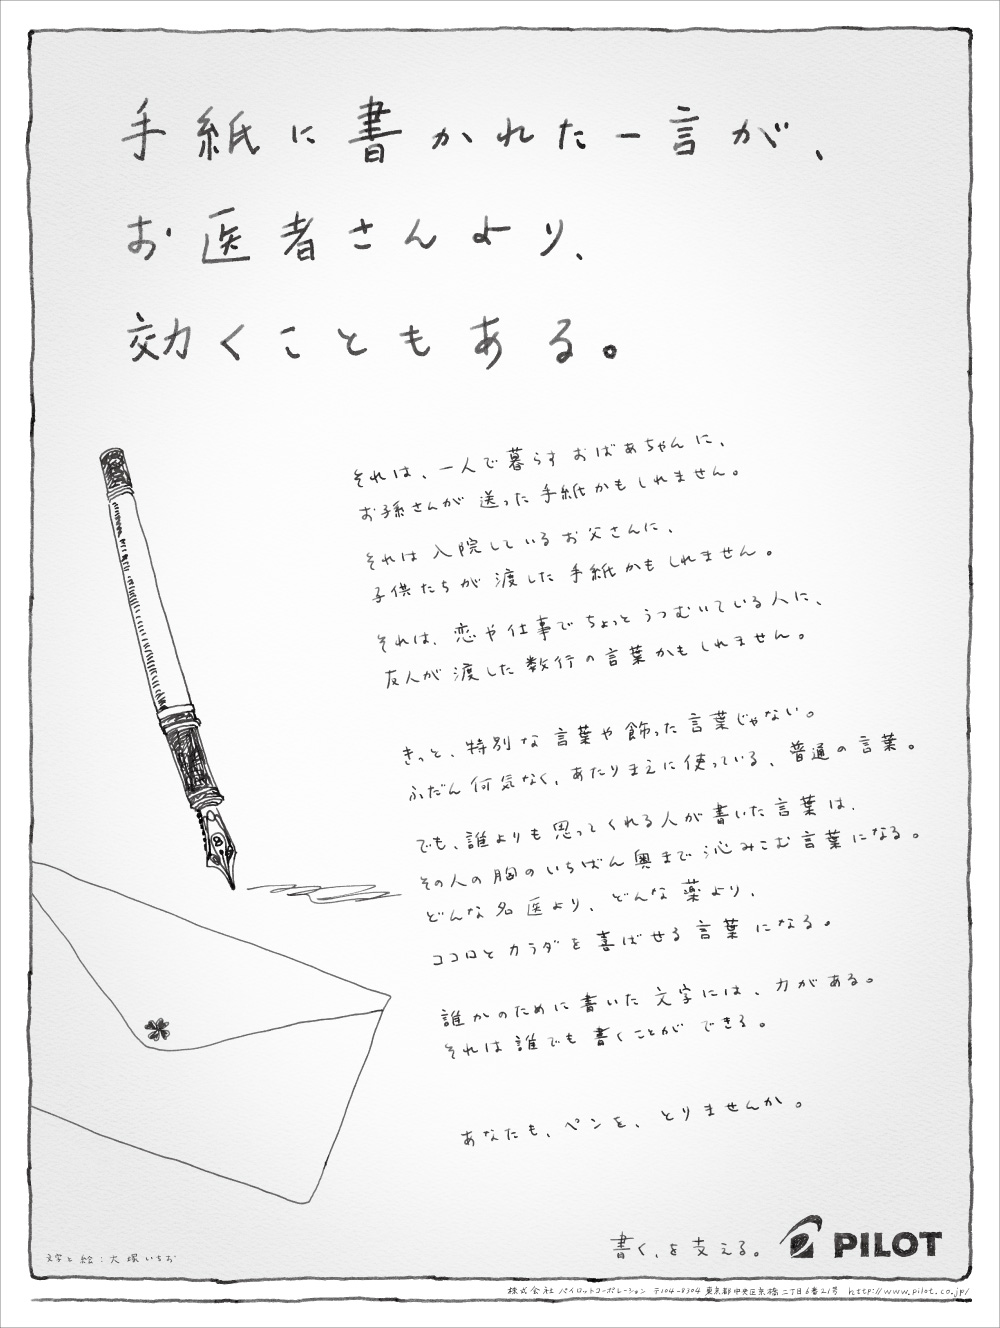 手紙に書かれた一言が、
お医者さんより、
効くこともある。
それは、一人で暮らすおばあちゃんに、
お孫さんが送った手紙かもしれません。
それは入院しているお父さんに、
子供たちが渡した手紙かもしれません。
それは、恋や仕事でちょっとうつむいている人に、
友人が渡した数行の言葉かもしれません。
きっと、特別な言葉や飾った言葉じゃない。
ふだん何気なく、あたりまえに使っている、普通の言葉。
でも、誰よりも思ってくれる人が書いた言葉は、
その人の胸のいちばん奥まで沁みこむ言葉になる。
どんな名医より、どんな薬より、
ココロとカラダを喜ばせる言葉になる。
誰かのために書いた文字には、力がある。
それは誰でも書くことができる。
あなたも、ペンを、とりませんか。
書く、を支える。 PILOT
文字と絵：大塚いちお
株式会社 パイロットコーポレーション 〒104-8304 東京都中央区京橋二丁目6番21号 http://www.pilot.co.jp/